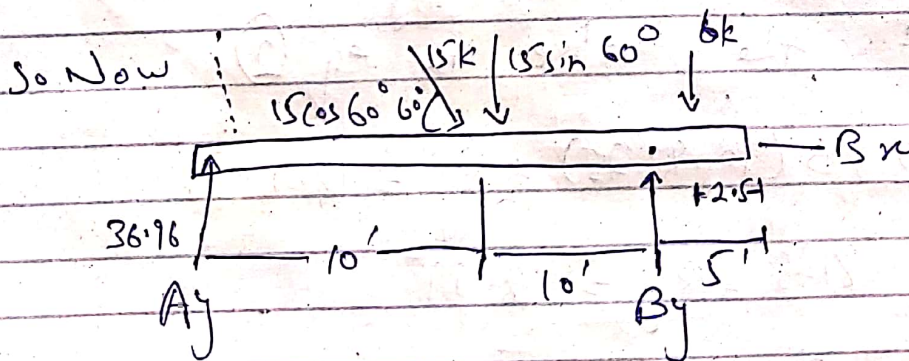 So Now
15k 15 sin 60° 6k
15 cos 60° 60°
Bx
36.96
10'
10'
5'
Ay
By